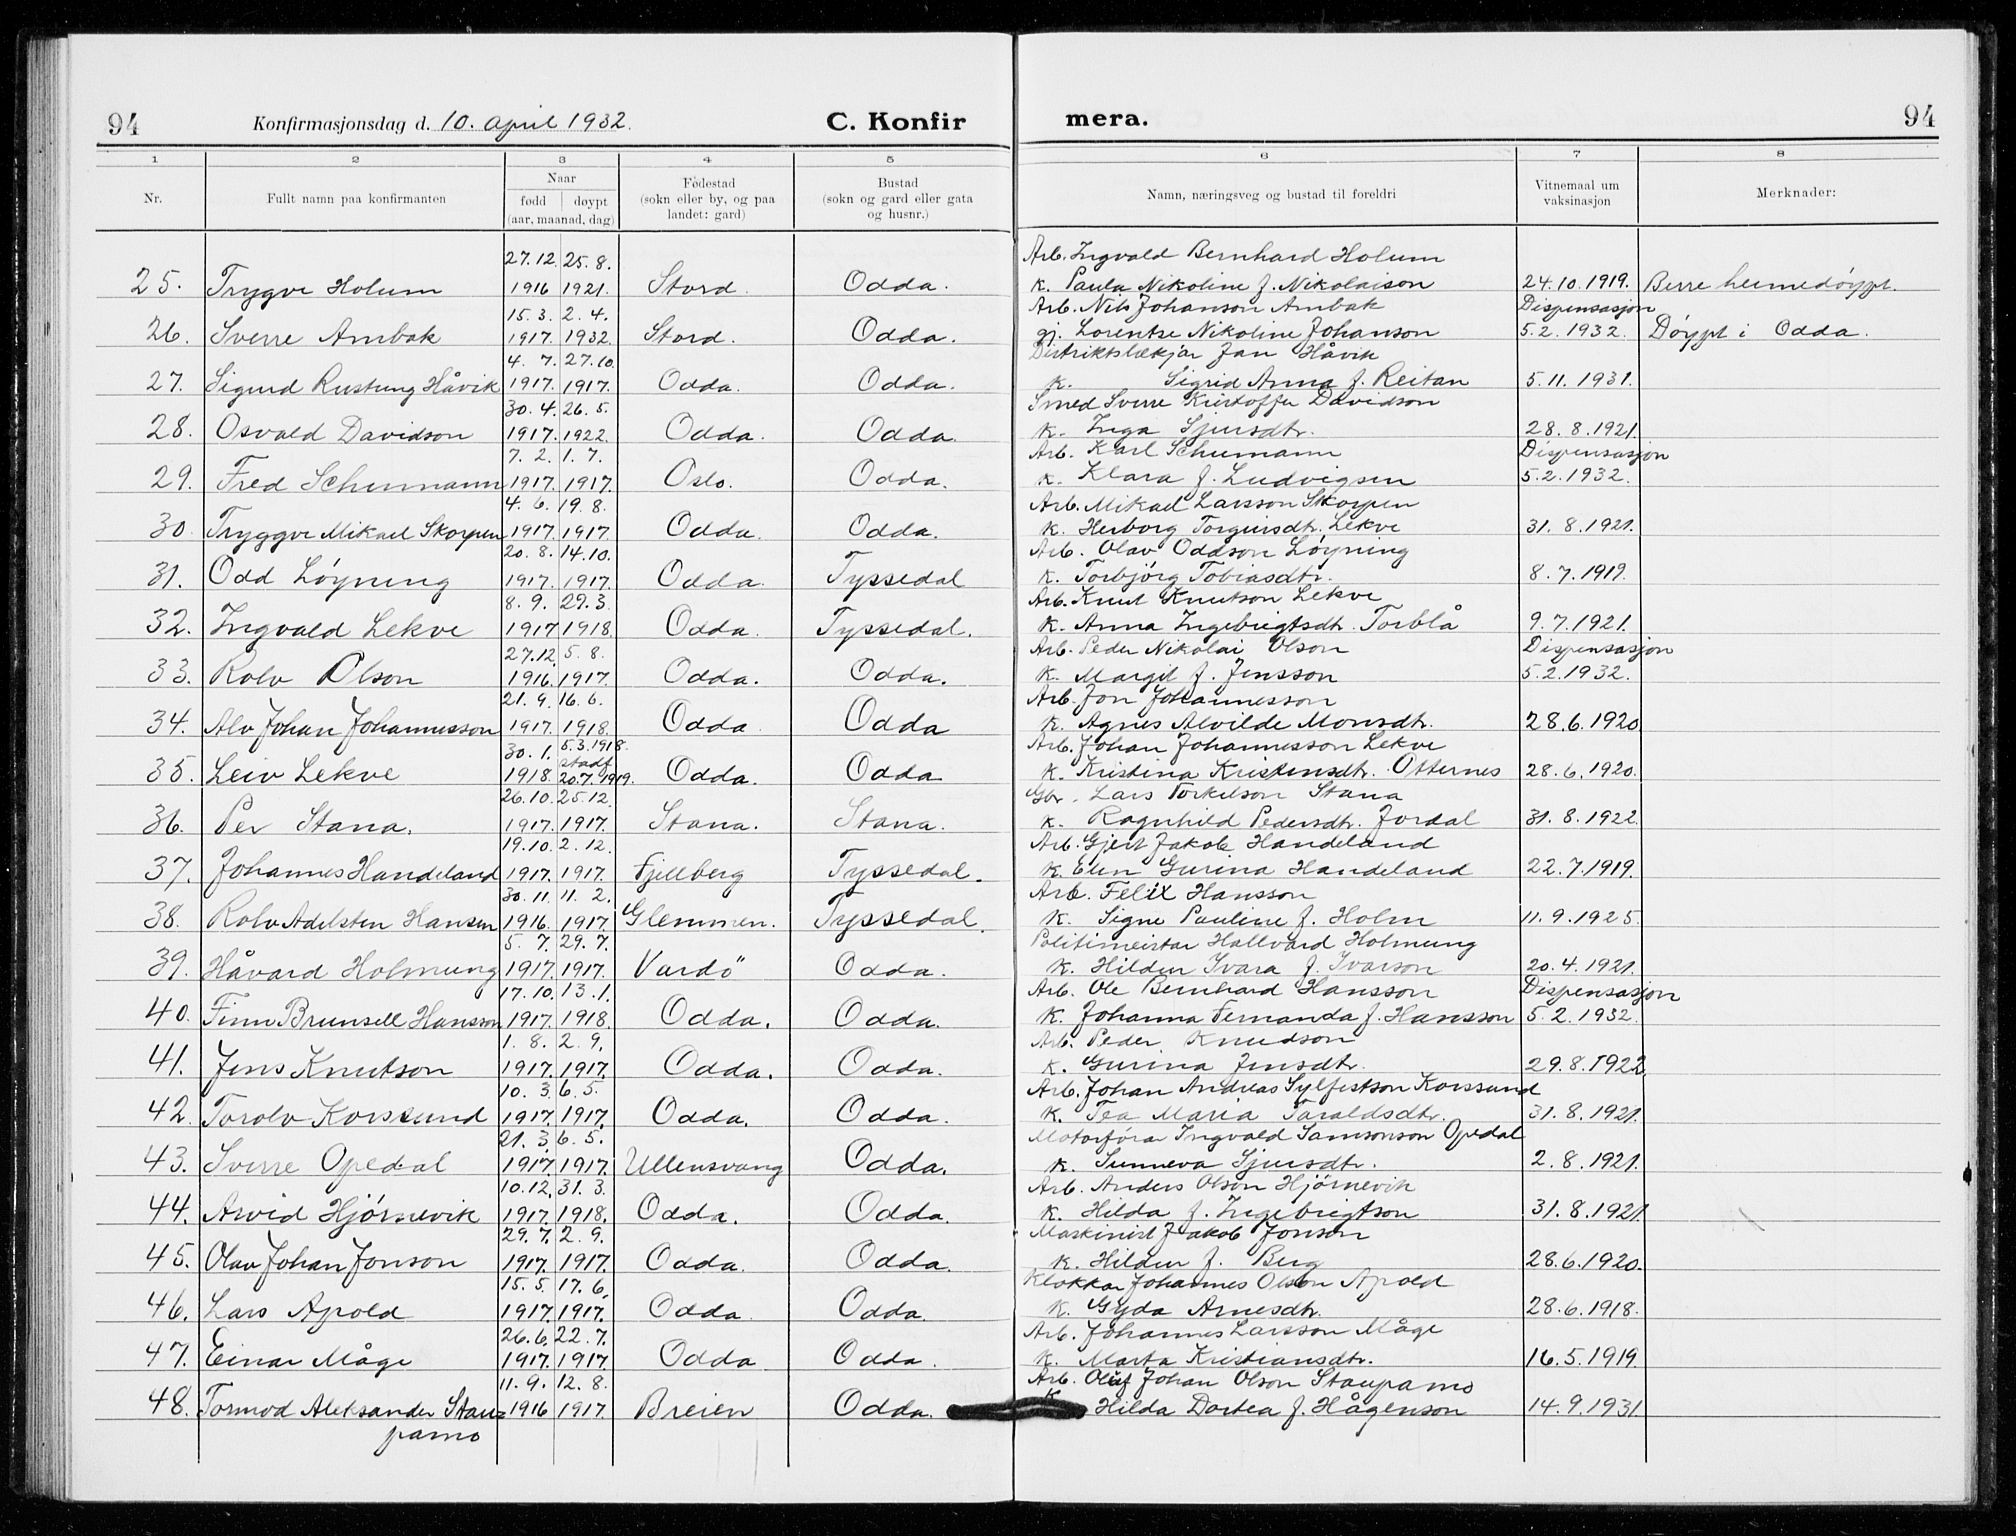 94 Konfirmasjonsdag d. 10. april 1932. C. Konfir mera. 94
1 2 3 4 5 6 7 8
Nr. Fullt namn paa konfirmanten Naar født døypt (aar, maanad, dag) Fødestad (sokn eller by, og paa landet: gard) Bustad (sokn og gard eller gata og husnr.) Namn, næringsveg og bustad til foreldri Vitnemaal um vaksinasjon Merknader:
27.12. 25.8. Arb. Ingvald Bernhard Holum
25. Trygve Holum 1916 1921. Stord. Odda. K. Paula Nikoline f. Nikolaison 24.10.1919. Berre heimedøypt.
15.3. 2.4. Arb. Nils Johanson Ambak Dispensasjon
26. Sverre Ambak 1917. 1932. Stord. Odda. gj. Lorentze Nikoline Johanson 5.2.1932. Døypt i Odda.
4.7. 27.10. Distriktslækjar Jan Håvik
27. Sigurd Rustung Håvik 1917. 1917. Odda. Odda. K. Sigrid Anna f. Reitan 5.11.1931.
30.4. 26.5. Smed Sverre Kristoffer Davidson
28. Osvald Davidson 1917. 1922. Odda. Odda. K. Inga Sjursdtr. 28.8.1921.
7.2. 1.7. Arb. Karl Schumann Dispensasjon
29. Fred Schumann 1917. 1917. Oslo. Odda. K. Klara f. Ludvigsen 5.2.1932.
4.6. 19.8. Arb. Mikael Larsson Skorpen
30. Tryggve Mikael Skorpen 1917. 1917. Odda. Odda. K. Herborg Torgeirsdtr. Lekve 31.8.1921.
20.8. 14.10. Arb. Olav Oddson Løyning
31. Odd Løyning 1917. 1917. Odda. Tyssedal K. Torbjørg Tobiasdtr. 8.7.1919.
8.9. 29.3. Arb. Knut Knutson Lekve
32. Ingvald Lekve 1917 1918. Odda. Tyssedal. K. Anna Ingebrigtsdtr. Torblå 9.7.1921.
27.12. 5.8. Arb. Peder Nikolai Olson Dispensasjon
33. Rolv Olson 1916. 1917. Odda. Odda. K. Margit f. Jensson 5.2.1932.
21.9. 16.6. Arb. Jon Johannesson
34. Alv Johan Johannesson 1917. 1918. Odda Odda K. Agnes Alvilde Monsdtr. 28.6.1920.
30.1. 5.3.1918. stadf. Arb. Johan Johannesson Lekve
35. Leiv Lekve 1918. 20.7.1919. Odda. Odda K. Kristina Kristensdtr. Otternes 28.6.1920.
26.10. 25.12. Gbr. Lars Torkelson Stana
36. Per Stana. 1917. 1917. Stana. Stana. K. Ragnhild Pedersdtr. Jordal 31.8.1922.
19.10. 2.12. Arb. Gjert Jakob Handeland
37. Johannes Handeland 1917. 1917. Fjellberg Tyssedal. K. Elen Gurina Handeland 22.7.1919.
30.11. 11.2. Arb. Felix Hansson
38. Rolv Adelsten Hansen 1916. 1917. Glemmen. Tyssedal. K. Signe Pauline f. Holm 11.9.1925.
5.7. 29.7. Politimeistar Hallvard Holmung
39. Håvard Holmung 1917. 1917. Vardö Odda. K. Hildur Ivara f. Ivarson 20.4.1921.
17.10. 13.1. Arb. Ole Bernhard Hansson Dispensasjon
40. Finn Brunsell Hansson 1917. 1918. Odda. Odda. K. Johanna Fernanda f. Hansson 5.2.1932.
1.8. 2.9. Arb. Peder Knudson
41. Jens Knutson 1917. 1917. Odda. Odda. K. Gurina Jensdtr. 29.8.1922.
10.3. 6.5. Arb. Johan Andreas Sylfestson Korssund
42. Torolv Korssund 1917. 1917. Odda. Odda. K. Tea Maria Taraldsdtr. 31.8.1921.
21.3. 6.5. Motorførar Ingvald Samsonson Opedal
43. Sverre Opedal 1917. 1917. Ullensvang Odda. K. Sunneva Sjursdtr. 2.8.1921.
10.12. 31.3. Arb. Anders Olson Hjørnevik
44. Arvid Hjørnevik 1917. 1918. Odda. Odda. K. Hilda f. Ingebrigtson 31.8.1921.
29.7. 2.9. Maskinist Jakob Jonson
45. Olav Johan Jonson 1917. 1917. Odda. Odda. K. Hildur f. Berg 28.6.1920.
15.5. 17.6. Klokkar Johannes Olson Apold
46. Lars Apold 1917. 1917. Odda. Odda. K. Gyda Arnesdtr. 28.6.1918.
26.6. 22.7. Arb. Johannes Larsson Måge
47. Einar Måge 1917. 1917. Odda. Odda. K. Marta Kristiansdtr. 16.5.1919
11.9. 12.8. Arb. Oluf Johan Olson Staupamo
48. Tormod Aleksander Stau= 1916 1917. Breien Odda. K. Hilda Dortea f. Hågenson 14.9.1931
pamo